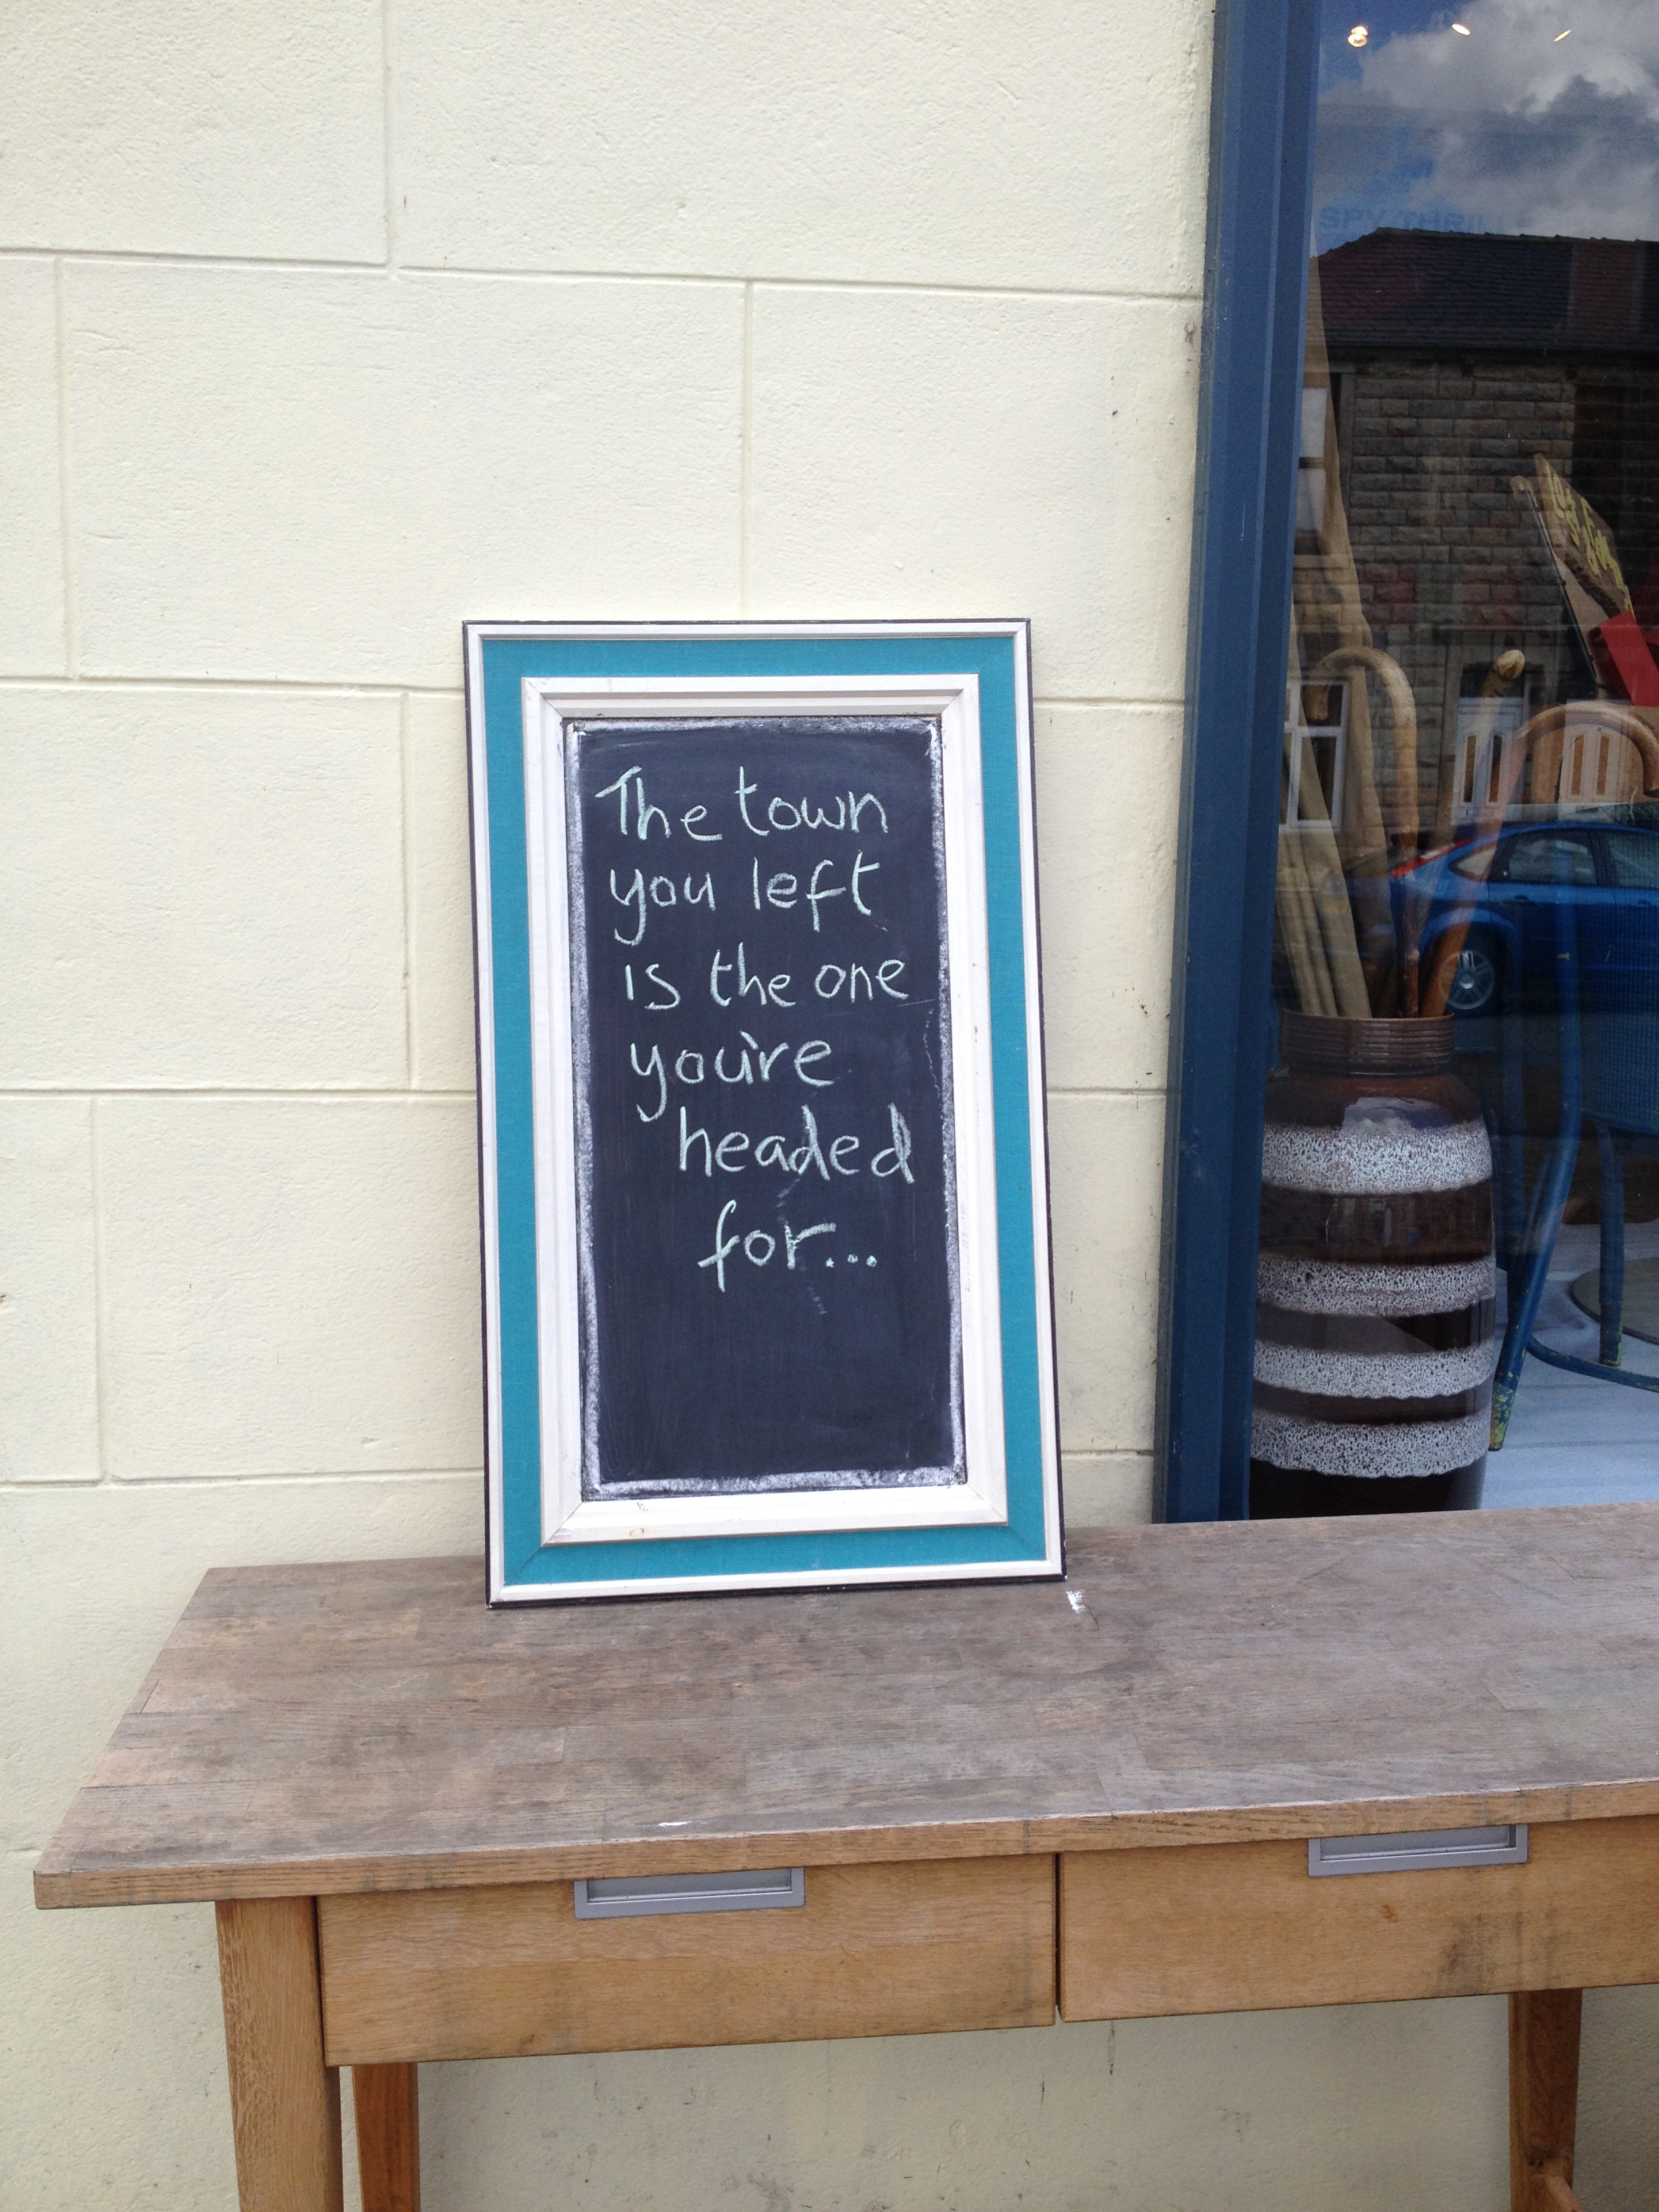 The town
you left
is the one
you're
headed
for...
SPY THRILL